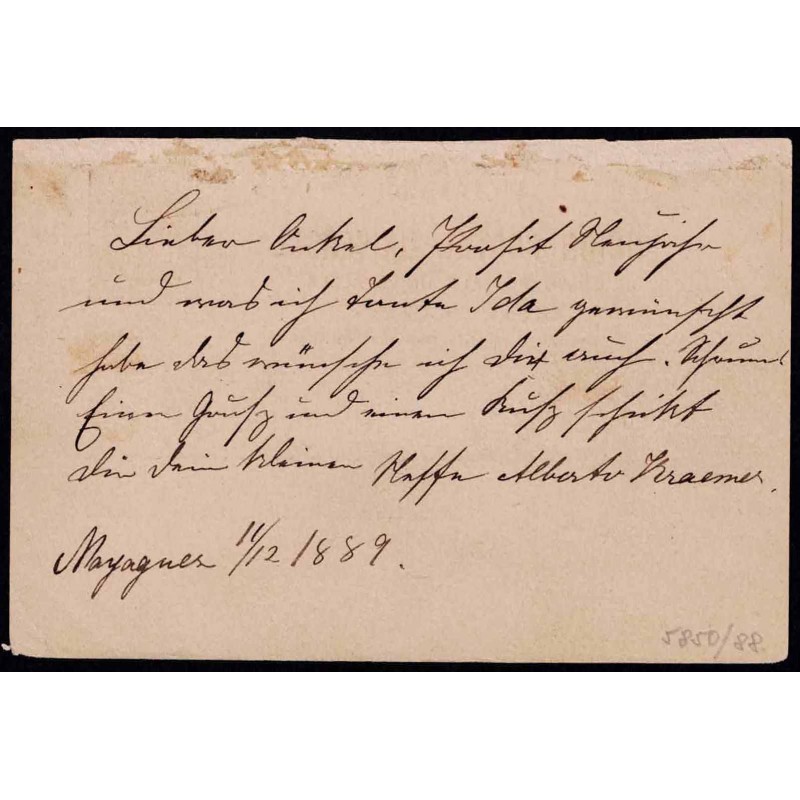 Lieber Onkel, Prosit Neujahr
und was ich Tante Ida gewünscht
habe das wünsche ich Dir auch.
Einen Grusz und einen Kusz schickt
Dir dein kleiner Neffe Alberto Kraemer.
Mayaguez 11/12 1889.
5850/88